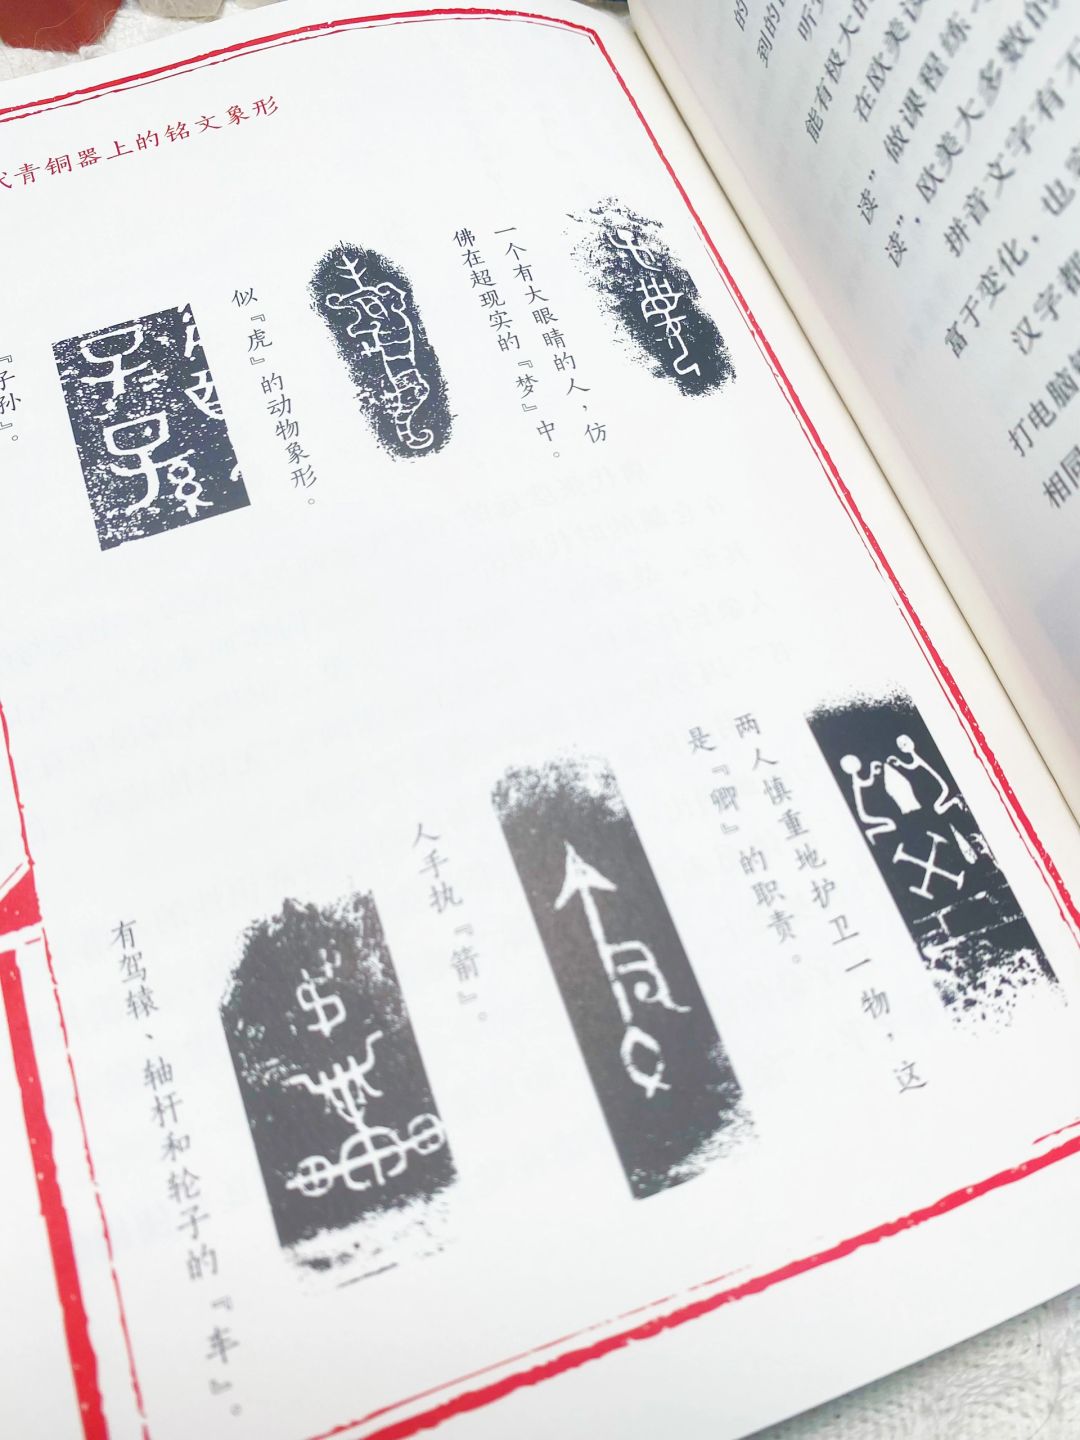 代青铜器上的铭文象形
一个有大眼睛的人，仿
佛在超现实的『梦』中。
似『虎』的动物象形。
『子
孙』。
两人慎重地护卫一物，这
是『卿』的职责。
人手执『箭』。
有驾辕、轴杆和轮子的『车』。
的
到的
听
能有极大的
在欧美
读”做课程练
读”，欧美大多数的
拼音文字有不
富于变化，也
汉字都
打电脑
相同